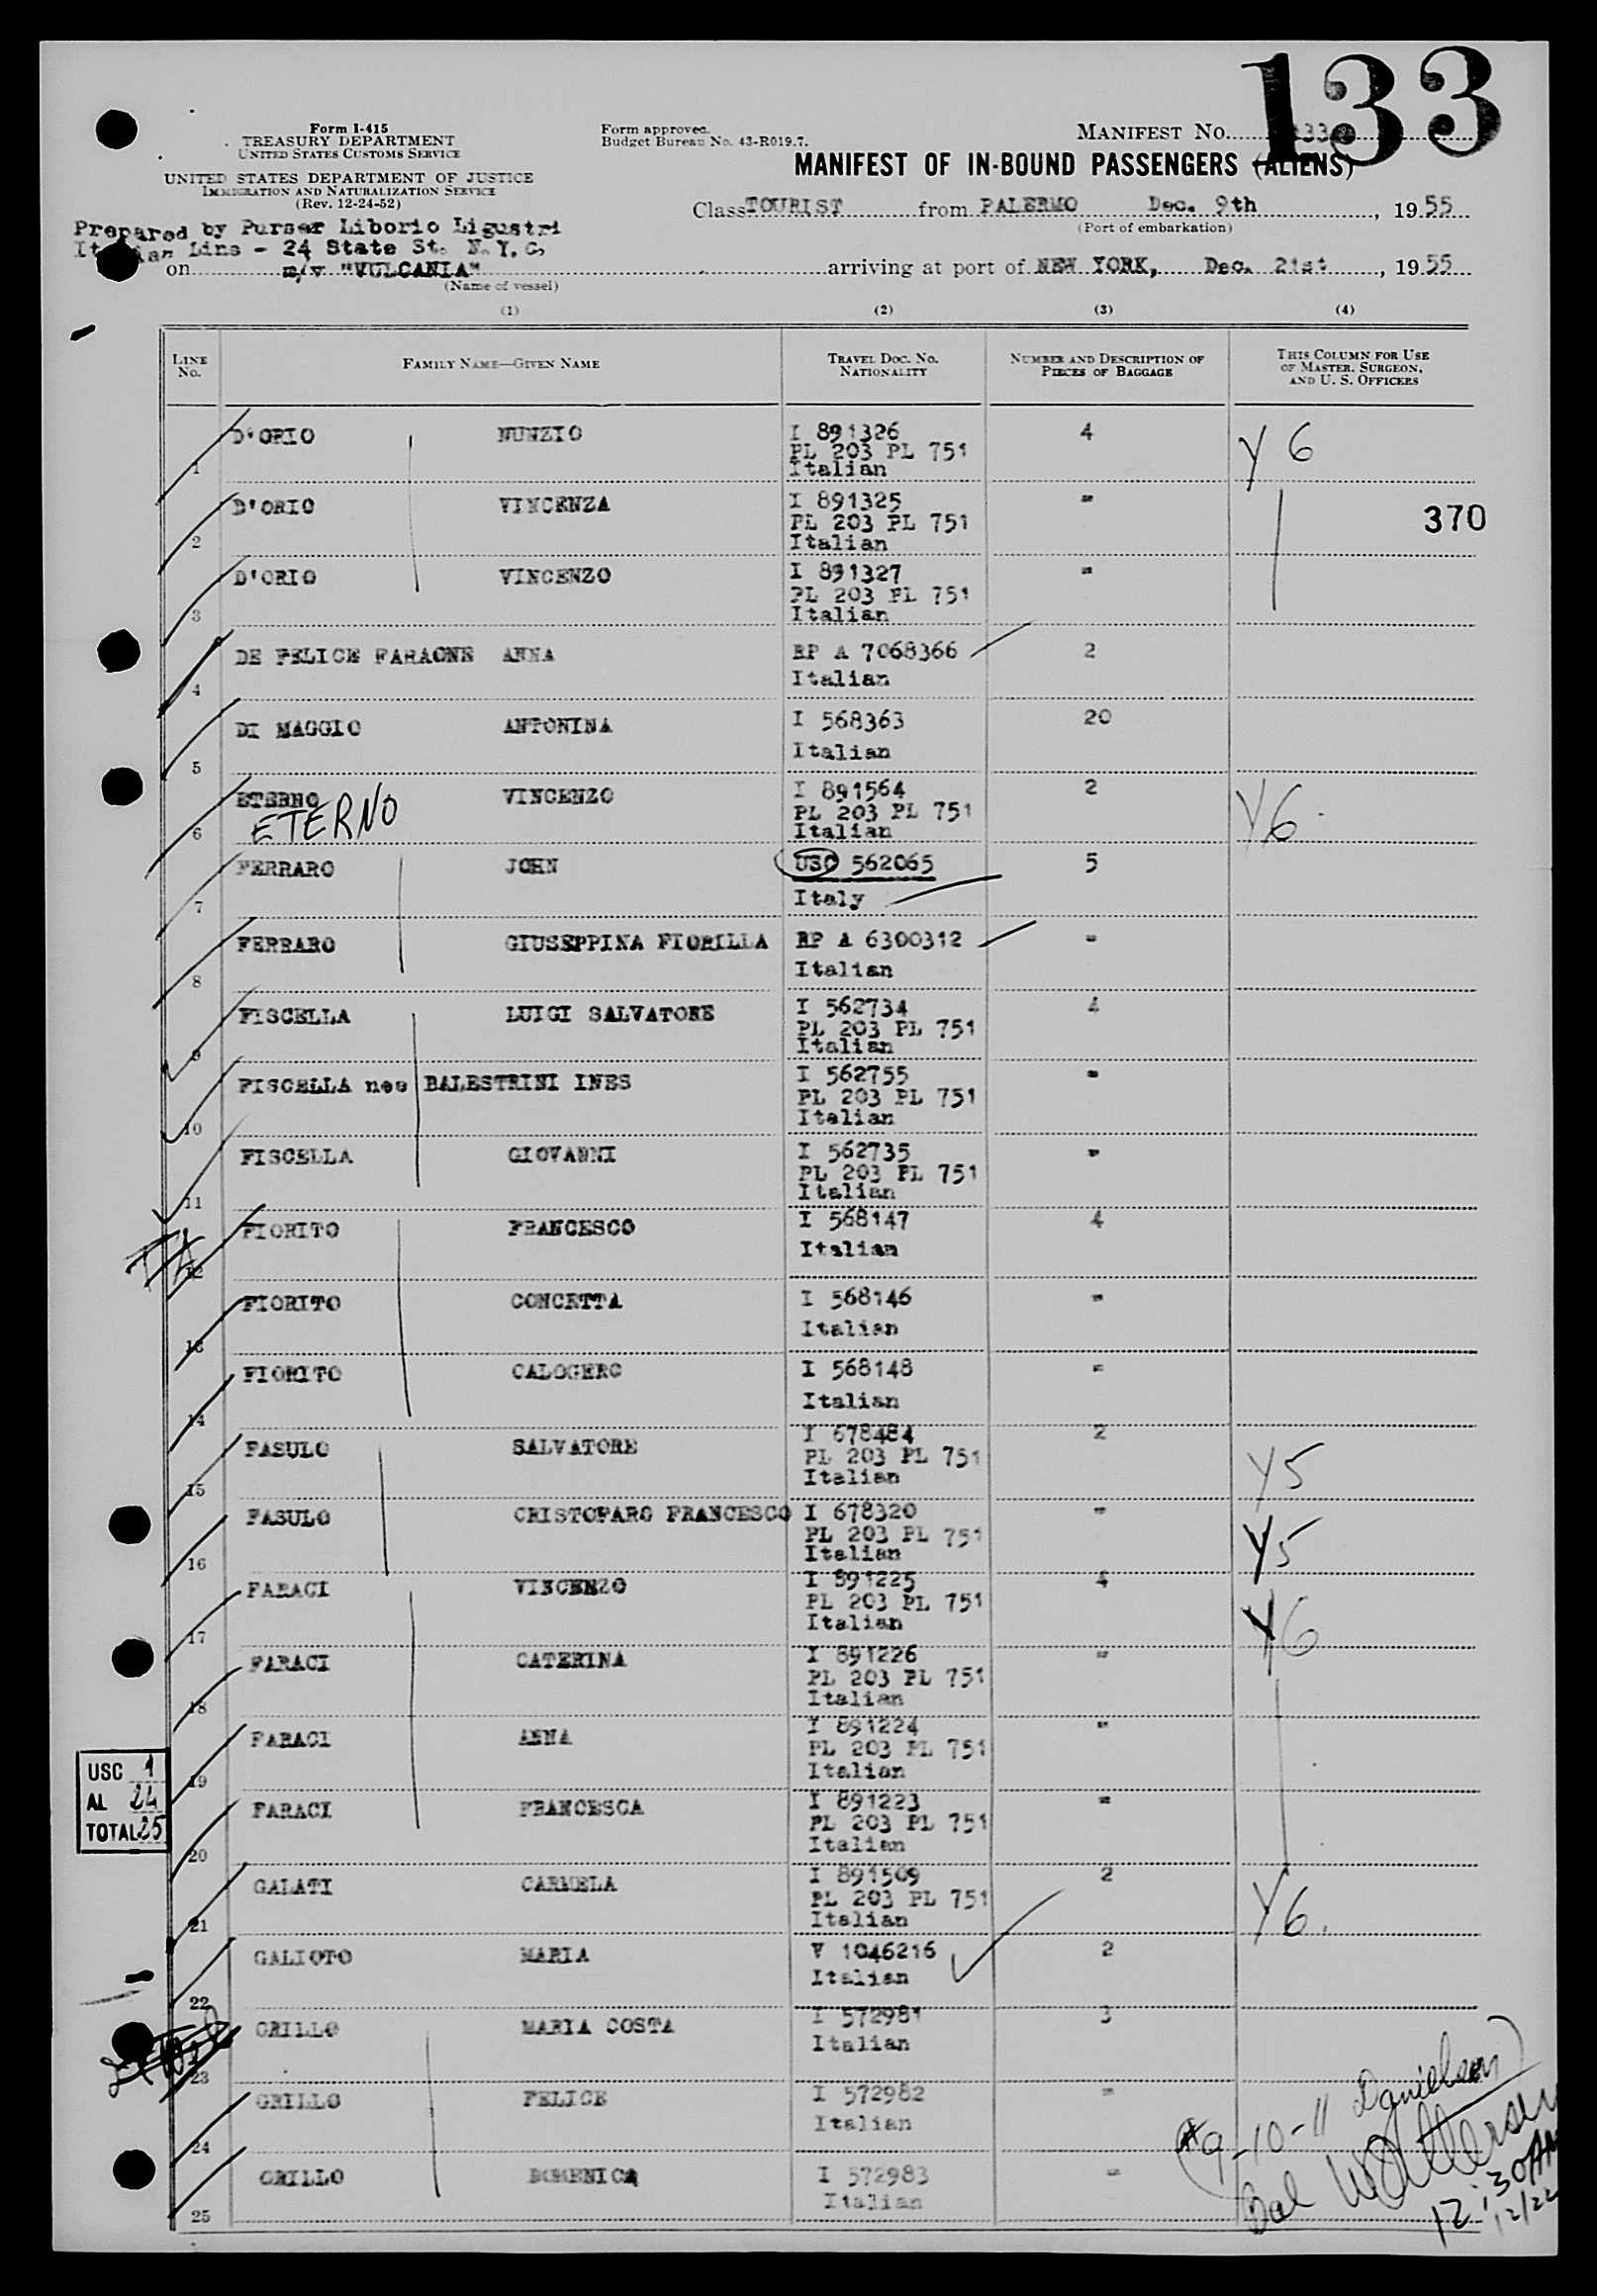 133
Form I-415
TREASURY DEPARTMENT
UNITED STATES CUSTOMS SERVICE
UNITED STATES DEPARTMENT OF JUSTICE
IMMIGRATION AND NATURALIZATION SERVICE
(Rev. 12-24-52)
Form approved.
Budget Bureau No. 43-R019.7.
MANIFEST NO.
MANIFEST OF IN-BOUND PASSENGERS (ALIENS)
Class TOURIST from PALERMO Dec. 9th, 1955
(Port of embarkation)
Prepared by Purser Liborio Ligustri
Italian Line - 24 State St. N.Y.C.
on m/v "VULCANIA" arriving at port of NEW YORK, Dec. 21st, 1955
(Name of vessel)
(1) (2) (3) (4)
LINE NO. FAMILY NAME—GIVEN NAME TRAVEL DOC. NO. NATIONALITY NUMBER AND DESCRIPTION OF PIECES OF BAGGAGE THIS COLUMN FOR USE OF MASTER, SURGEON, AND U. S. OFFICERS
1 D'ORIO NUNZIO I 891326 4 Y6
PL 203 PL 751
Italian
2 D'ORIO VINCENZA I 891325 "
PL 203 PL 751 370
Italian
3 D'ORIO VINCENZO I 891327 "
PL 203 PL 751
Italian
4 DE FELICE FARAONE ANNA RP A 7068366 2
Italian
5 DI MAGGIO ANTONINA I 568363 20
Italian
6 ETERNO VINCENZO I 891564 2 Y6
ETERNO PL 203 PL 751
Italian
7 FERRARO JOHN USC 562065 5
Italy
8 FERRARO GIUSEPPINA FIORILLA RP A 6300312 "
Italian
9 FISCELLA LUIGI SALVATORE I 562734 4
PL 203 PL 751
Italian
10 FISCELLA nee BALESTRINI INES I 562755 "
PL 203 PL 751
Italian
11 FISCELLA GIOVANNI I 562735 "
PL 203 PL 751
Italian
12 FIORITO FRANCESCO I 568147 4
Italian
13 FIORITO CONCETTA I 568146 "
Italian
14 FIORITO CALOGERO I 568148 "
Italian
15 FASULO SALVATORE I 678484 2 Y5
PL 203 PL 751
Italian
16 FASULO CRISTOFARO FRANCESCO I 678320 " Y5
PL 203 PL 751
Italian
17 FARACI VINCENZO I 891225 4 Y6
PL 203 PL 751
Italian
18 FARACI CATERINA I 891226 "
PL 203 PL 751
Italian
19 FARACI ANNA I 891224 "
PL 203 PL 751
Italian
USC 1
AL 24
TOTAL 25
20 FARACI FRANCESCA I 891223 "
PL 203 PL 751
Italian
21 GALATI CARMELA I 891509 2 Y6.
PL 203 PL 751
Italian
22 GALIOTO MARIA V 1046216 2
Italian
23 GRILLO MARIA COSTA I 572981 3
Italian
24 GRILLO FELICE I 572982 "
Italian
25 GRILLO DOMENICA I 572983 "
Italian
(#9-10-11 Danielsen)
Bal
12:30AM
12/22